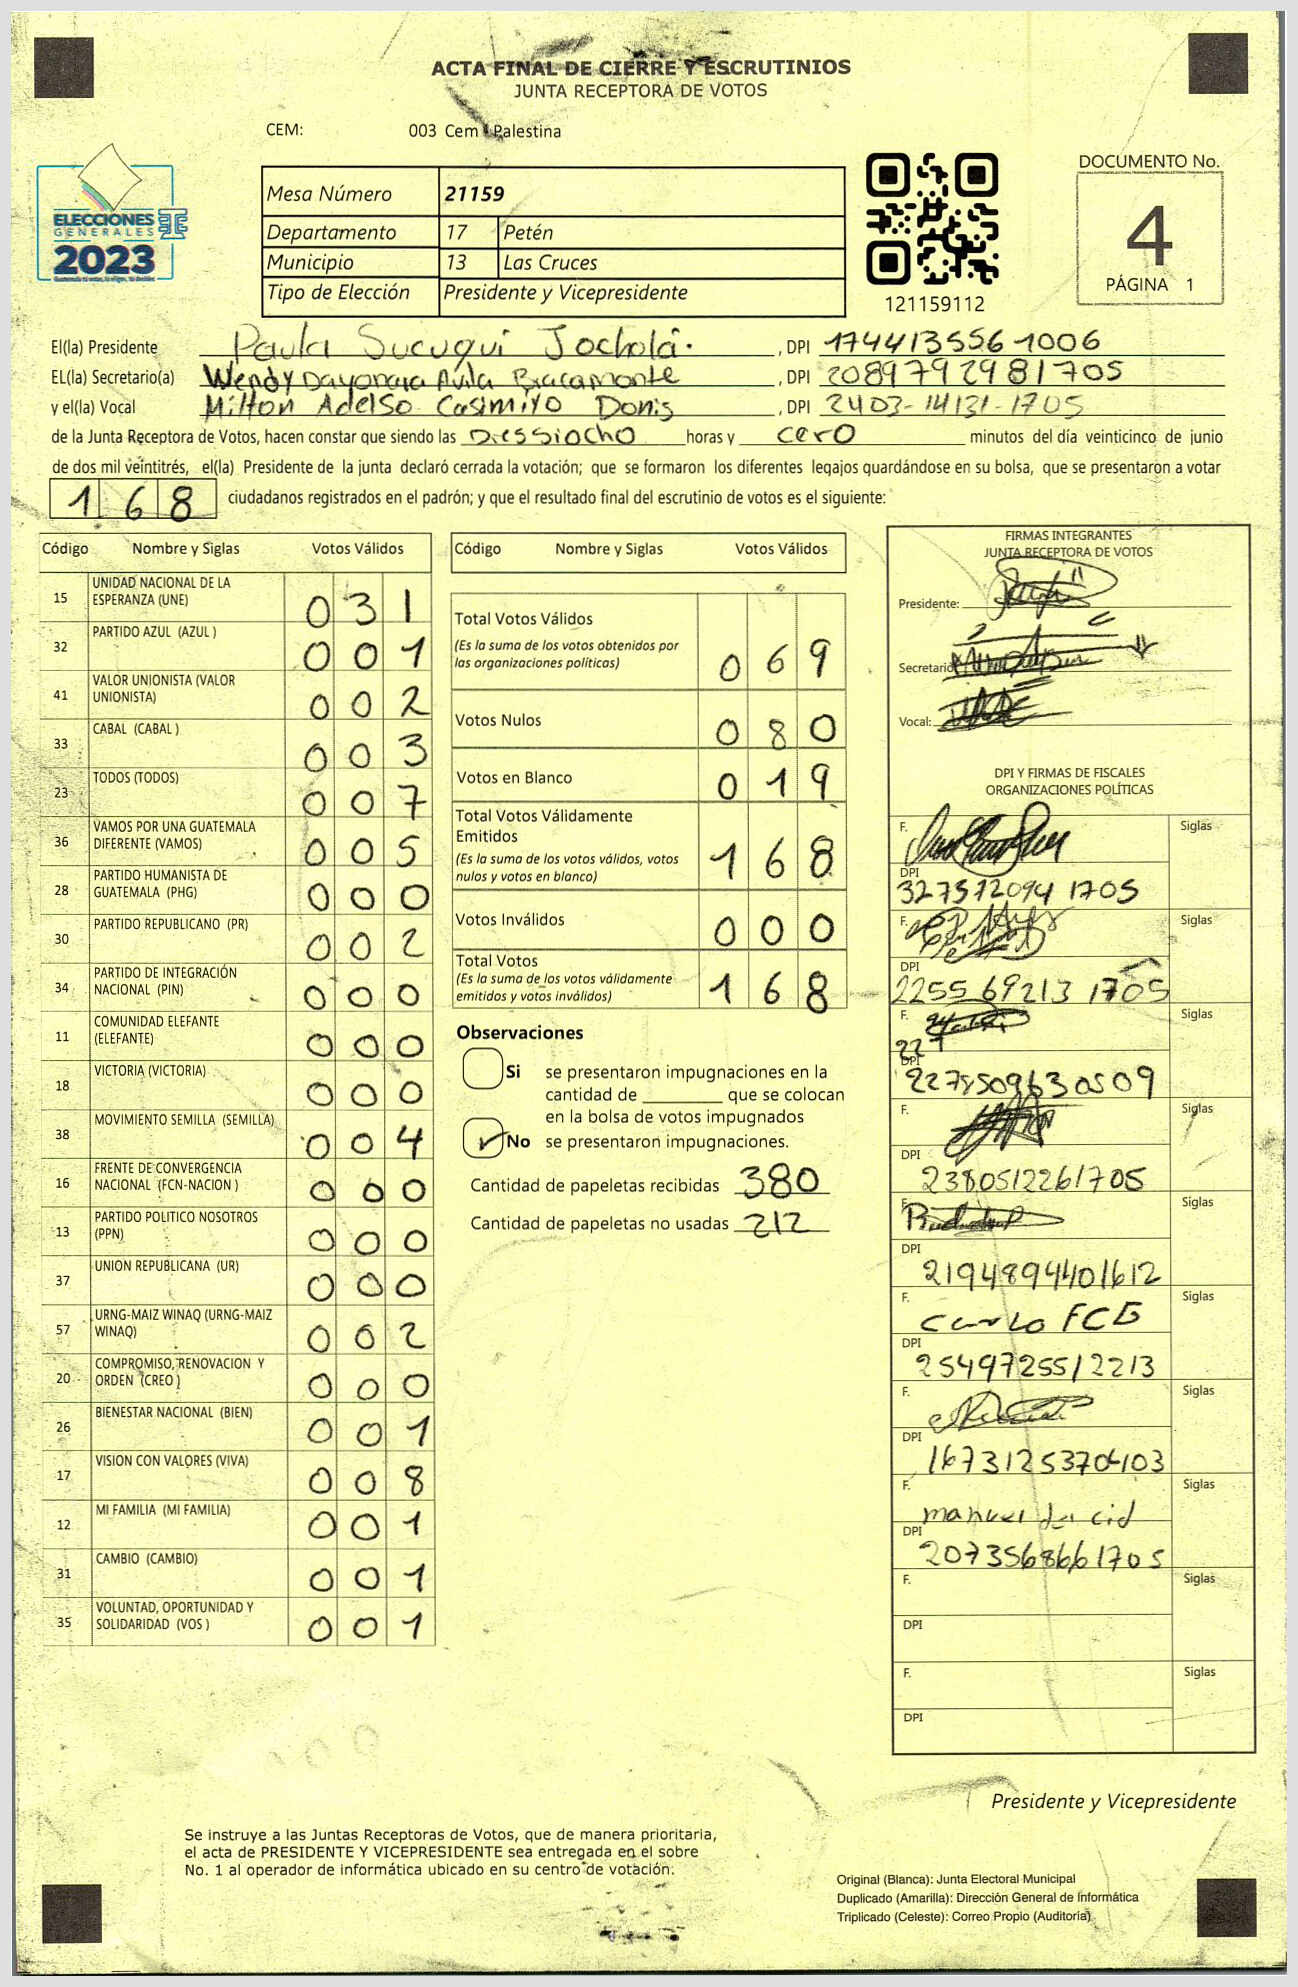 ACTA FINAL DE CIERRE Y ESCRUTINIOS
JUNTA RECEPTORA DE VOTOS
CEM: 003 Cem Palestina
ELECCIONES
GENERALES
2023
Mesa Número 21159
Departamento 17 Petén
Municipio 13 Las Cruces
Tipo de Elección Presidente y Vicepresidente
121159112
DOCUMENTO No.
4
PÁGINA 1
El(la) Presidente Paula Sucuqui Jocholá. , DPI 1744135561006
EL(la) Secretario(a) Wendy Dayanara Avila Bracamonte , DPI 2089792981705
y el(la) Vocal Milton Adelso Casimiro Donis , DPI 2403-14131-1705
de la Junta Receptora de Votos, hacen constar que siendo las Diessiocho horas y cero minutos del día veinticinco de junio
de dos mil veintitrés, el(la) Presidente de la junta declaró cerrada la votación; que se formaron los diferentes legajos quardándose en su bolsa, que se presentaron a votar
168 ciudadanos registrados en el padrón; y que el resultado final del escrutinio de votos es el siguiente:
Código Nombre y Siglas Votos Válidos
15 UNIDAD NACIONAL DE LA ESPERANZA (UNE) 031
32 PARTIDO AZUL (AZUL ) 001
41 VALOR UNIONISTA (VALOR UNIONISTA) 002
33 CABAL (CABAL ) 003
23 TODOS (TODOS) 007
36 VAMOS POR UNA GUATEMALA DIFERENTE (VAMOS) 005
28 PARTIDO HUMANISTA DE GUATEMALA (PHG) 000
30 PARTIDO REPUBLICANO (PR) 002
34 PARTIDO DE INTEGRACIÓN NACIONAL (PIN) 000
11 COMUNIDAD ELEFANTE (ELEFANTE) 000
18 VICTORIA (VICTORIA) 000
38 MOVIMIENTO SEMILLA (SEMILLA) 004
16 FRENTE DE CONVERGENCIA NACIONAL (FCN-NACION ) 000
13 PARTIDO POLITICO NOSOTROS (PPN) 000
37 UNION REPUBLICANA (UR) 000
57 URNG-MAIZ WINAQ (URNG-MAIZ WINAQ) 002
20 COMPROMISO, RENOVACION Y ORDEN (CREO ) 000
26 BIENESTAR NACIONAL (BIEN) 001
17 VISION CON VALORES (VIVA) 008
12 MI FAMILIA (MI FAMILIA) 001
31 CAMBIO (CAMBIO) 001
35 VOLUNTAD, OPORTUNIDAD Y SOLIDARIDAD (VOS ) 001
Código Nombre y Siglas Votos Válidos
Total Votos Válidos 069
(Es la suma de los votos obtenidos por
las organizaciones políticas)
Votos Nulos 080
Votos en Blanco 019
Total Votos Válidamente
Emitidos 168
(Es la suma de los votos válidos, votos
nulos y votos en blanco)
Votos Inválidos 000
Total Votos 168
(Es la suma de los votos válidamente
emitidos y votos inválidos)
Observaciones
Si se presentaron impugnaciones en la
cantidad de ________ que se colocan
en la bolsa de votos impugnados
No se presentaron impugnaciones.
Cantidad de papeletas recibidas 380
Cantidad de papeletas no usadas 212
FIRMAS INTEGRANTES
JUNTA RECEPTORA DE VOTOS
Presidente:
Secretario
Vocal:
DPI Y FIRMAS DE FISCALES
ORGANIZACIONES POLÍTICAS
F. Siglas
DPI
327512094 1705
F. Siglas
DPI
2255 69213 1705
F. Siglas
227
DPI
2278509630509
F. Siglas
DPI
2380512261705
F. Siglas
DPI
2194894401612
F. Siglas
DPI
2549725512213
F. Siglas
DPI
1673125370403
F. manuel del cid Siglas
DPI
2073568661705
F. Siglas
DPI
F. Siglas
DPI
Presidente y Vicepresidente
Se instruye a las Juntas Receptoras de Votos, que de manera prioritaria,
el acta de PRESIDENTE Y VICEPRESIDENTE sea entregada en el sobre
No. 1 al operador de informática ubicado en su centro de votación.
Original (Blanca): Junta Electoral Municipal
Duplicado (Amarilla): Dirección General de Informática
Triplicado (Celeste): Correo Propio (Auditoría)